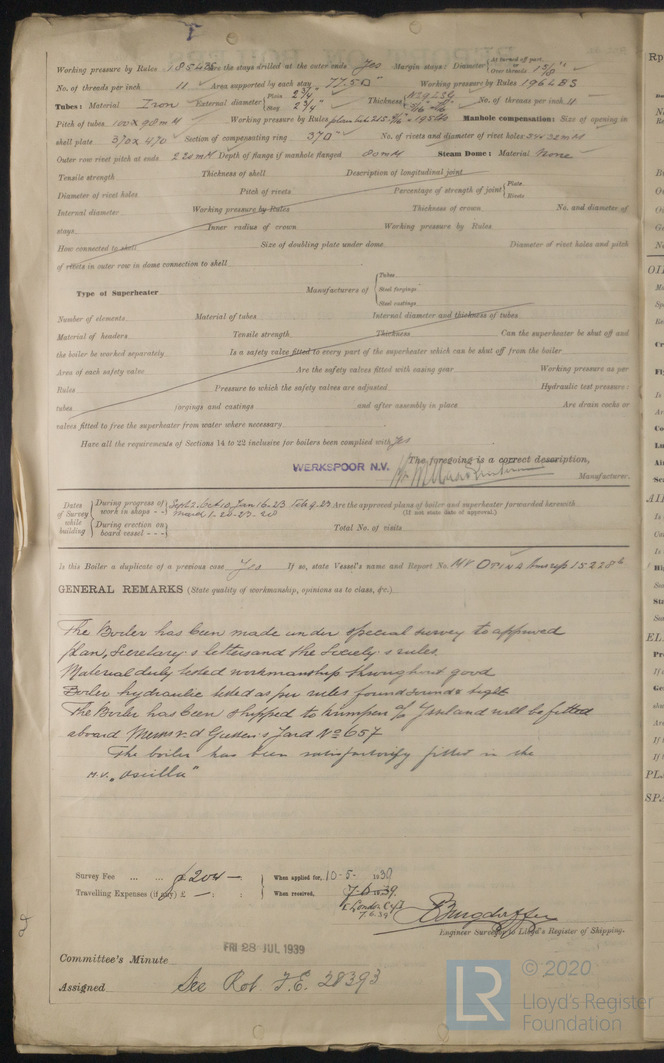 Working pressure by Rules 185 lbs Are the stays drilled at the outer ends Yes Margin stays: Diameter { At turned off part, or Over threads 1 5/8"
No. of threads per inch 11 Area supported by each stay 77.5 □" Working pressure by Rules 196 LBS
Tubes: Material Iron External diameter { Plain 2 3/4" Stay 2 3/4" Thickness { No. of threads per inch 11
Pitch of tubes 100 x 98 mM Working pressure by Rules Manhole compensation: Size of opening in
shell plate 370 x 470 Section of compensating ring No. of rivets and diameter of rivet holes 32 mM
Outer row rivet pitch at ends 220 mM Depth of flange if manhole flanged 80 mM Steam Dome: Material None
Tensile strength Thickness of shell Description of longitudinal joint
Diameter of rivet holes Pitch of rivets Percentage of strength of joint { Plate Rivets
Internal diameter Working pressure by Rules Thickness of crown No. and diameter of
stays Inner radius of crown Working pressure by Rules
How connected to shell Size of doubling plate under dome Diameter of rivet holes and pitch
of rivets in outer row in dome connection to shell
Type of Superheater Manufacturers of { Tubes Steel forgings Steel castings
Number of elements Material of tubes Internal diameter and thickness of tubes
Material of headers Tensile strength Thickness Can the superheater be shut off and
the boiler be worked separately Is a safety valve fitted to every part of the superheater which can be shut off from the boiler
Area of each safety valve Are the safety valves fitted with easing gear Working pressure as per
Rules Pressure to which the safety valves are adjusted Hydraulic test pressure:
tubes forgings and castings and after assembly in place Are drain cocks or
valves fitted to free the superheater from water where necessary
Have all the requirements of Sections 14 to 22 inclusive for boilers been complied with Yes
The foregoing is a correct description,
WERKSPOOR N.V. Manufacturer.
Dates of Survey while building { During progress of work in shops - - } Sept 2. Oct 10 Jan 16-23 Feb 9-23 Are the approved plans of boiler and superheater forwarded herewith
March 1-20-27-20 (If not state date of approval.)
{ During erection on board vessel - - - } Total No. of visits
Is this Boiler a duplicate of a previous case Yes If so, state Vessel's name and Report No. MV OTINA 15228
GENERAL REMARKS (State quality of workmanship, opinions as to class, &c.)
The Boiler has been made under special survey to approved
plan, Secretary's letters and the Society's rules.
Material duly tested workmanship throughout good
Boiler hydraulic tested as per rules found sound & tight
The Boiler has been shipped to Krimpen a/o Ijssel and will be fitted
aboard Messrs v.d Giessen's Yard No 657
The boiler has been satisfactorily fitted in the
m.v. "Oscilla"
Survey Fee ... ... £ 204 — When applied for, 10-5- 1939
Travelling Expenses (if any) £ — : : When received, 1939
7.6.39
Engineer Surveyor to Lloyd's Register of Shipping.
FRI 28 JUL 1939
Committee's Minute
Assigned See Rot F.E. 28393
LR © 2020
Lloyd's Register
Foundation